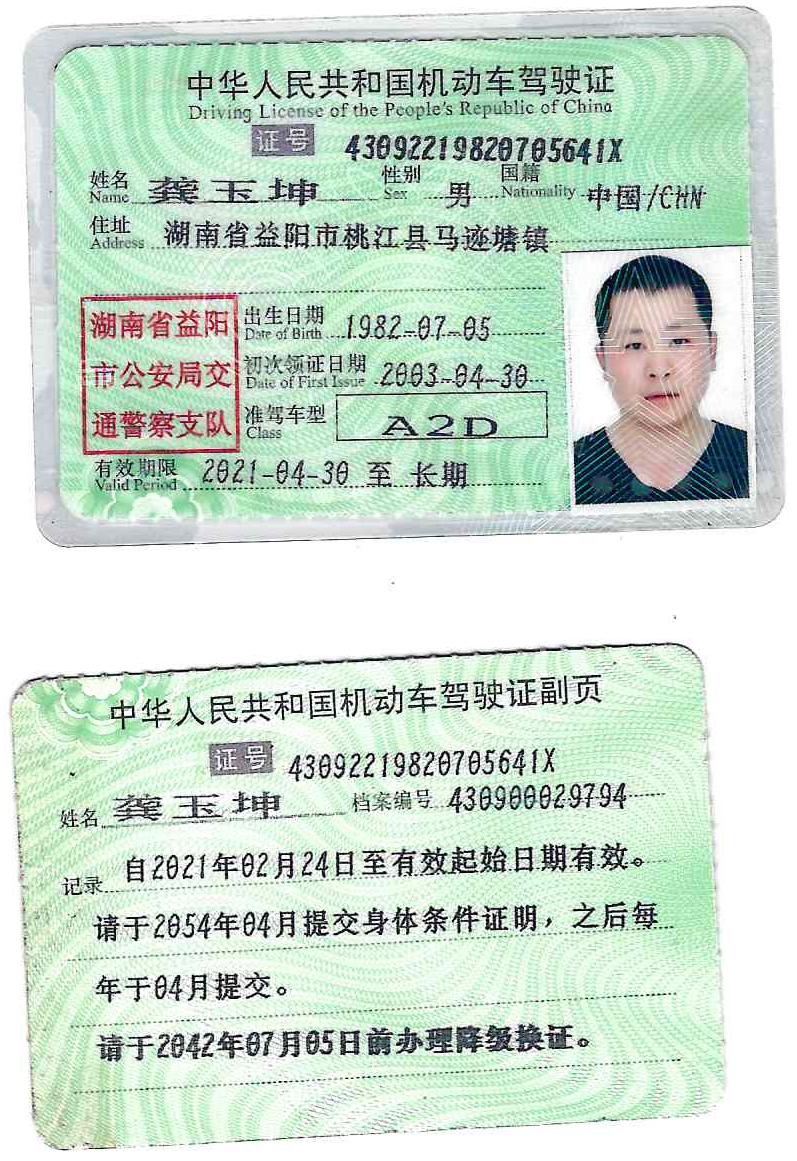 中华人民共和国机动车驾驶证
Driving License of the People's Republic of China
证号 43092219820705641X
姓名 Name 龚玉坤 性别 Sex 男 国籍 Nationality 中国/CHN
住址 Address 湖南省益阳市桃江县马迹塘镇
湖南省益阳
市公安局交
通警察支队
出生日期 Date of Birth 1982-07-05
初次领证日期 Date of First Issue 2003-04-30
准驾车型 Class A2D
有效期限 Valid Period 2021-04-30 至 长期
中华人民共和国机动车驾驶证副页
证号 43092219820705641X
姓名 龚玉坤 档案编号 430900029794
记录 自2021年02月24日至有效起始日期有效。
请于2054年04月提交身体条件证明，之后每
年于04月提交。
请于2042年07月05日前办理降级换证。